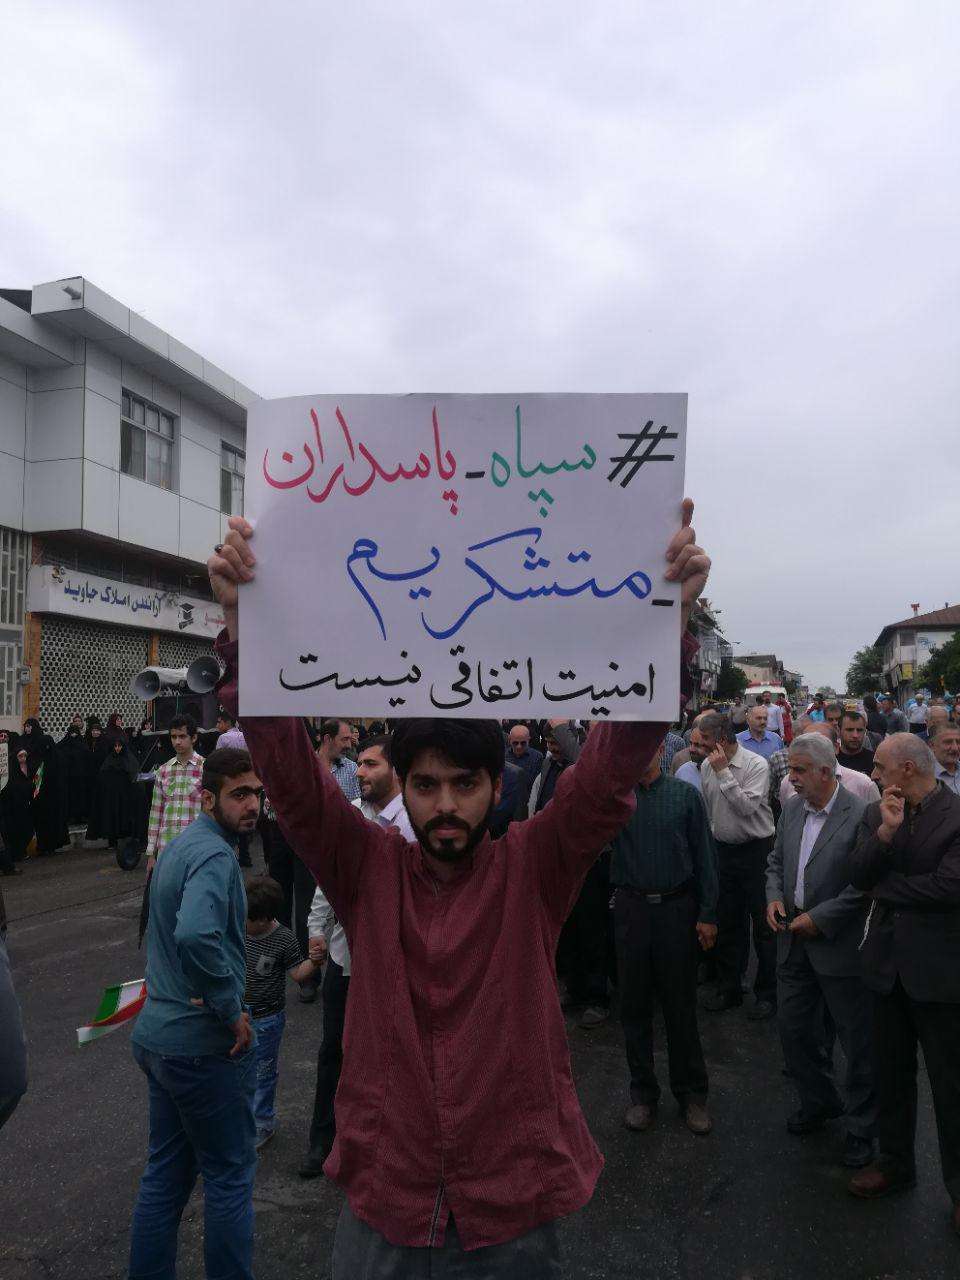 #سپاه_پاسداران
_متشکریم
امنیت اتفاقی نیست
آژانس املاک جاوید